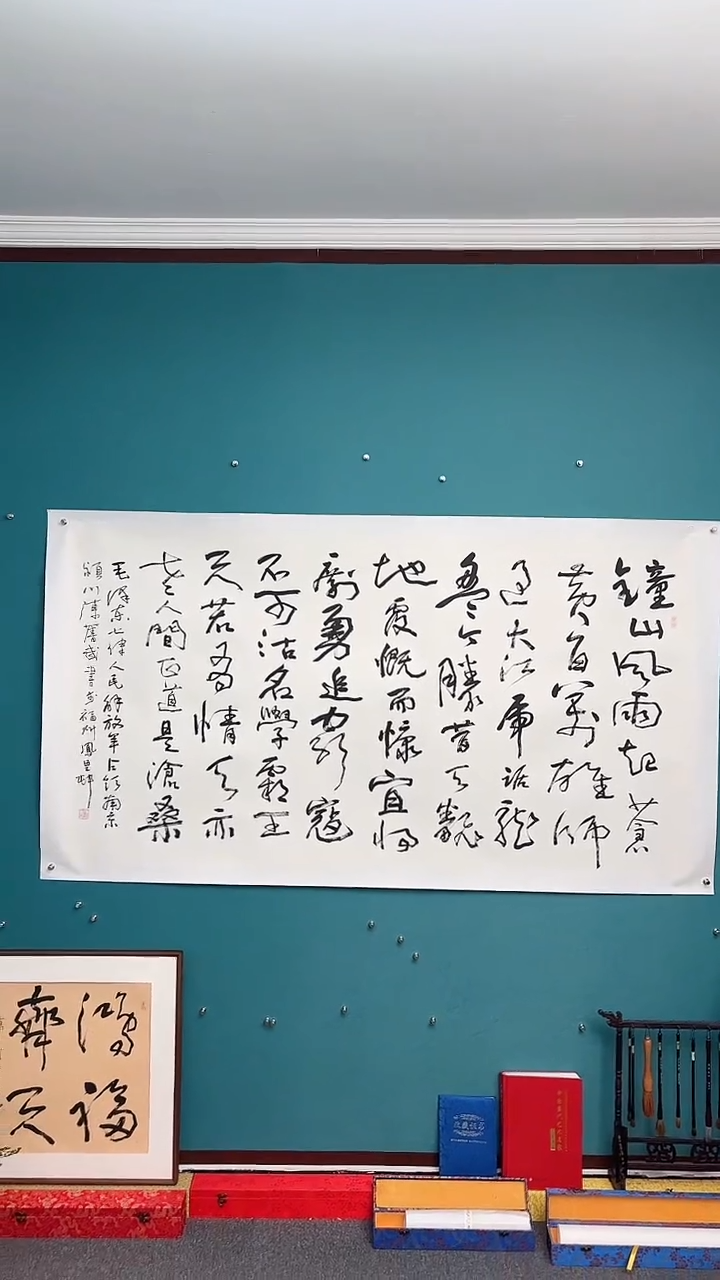 鐘山風雨起蒼
黄百萬雄師
過大江虎踞龍
盤今勝昔天翻
地覆慨而慷宜將
剩勇追窮寇
不可沽名學霸王
天若有情天亦
老人間正道是滄桑
毛澤東七律人民解放軍占領南京
潁川陳
書於福州鳳里
鴻福
齊天
收藏证书